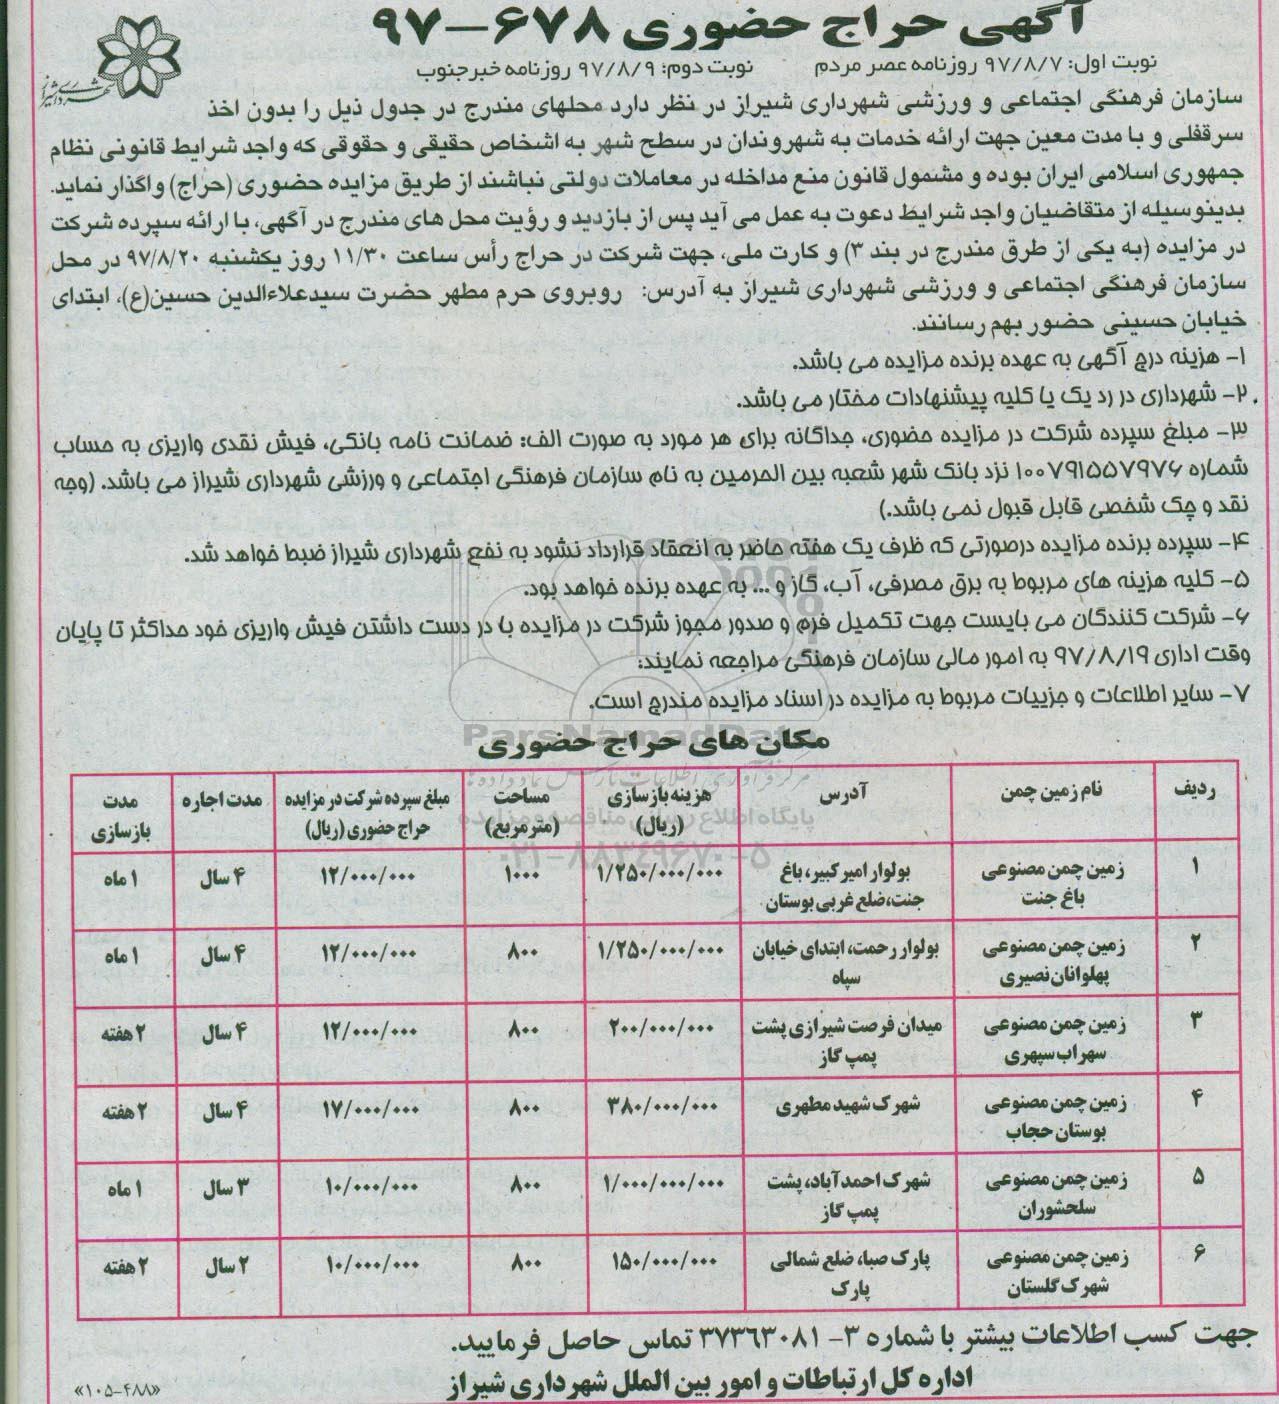 آگهی حراج حضوری ۶۷۸-۹۷
نوبت اول: ۹۷/۸/۷ روزنامه عصر مردم نوبت دوم: ۹۷/۸/۹ روزنامه خبرجنوب
شهرداری شیراز
سازمان فرهنگی اجتماعی و ورزشی شهرداری شیراز در نظر دارد محلهای مندرج در جدول ذیل را بدون اخذ
سرقفلی و با مدت معین جهت ارائه خدمات به شهروندان در سطح شهر به اشخاص حقیقی و حقوقی که واجد شرایط قانونی نظام
جمهوری اسلامی ایران بوده و مشمول قانون منع مداخله در معاملات دولتی نباشند از طریق مزایده حضوری (حراج) واگذار نماید.
بدینوسیله از متقاضیان واجد شرایط دعوت به عمل می آید پس از بازدید و رؤیت محل های مندرج در آگهی، با ارائه سپرده شرکت
در مزایده (به یکی از طرق مندرج در بند ۳) و کارت ملی، جهت شرکت در حراج رأس ساعت ۱۱/۳۰ روز یکشنبه ۹۷/۸/۲۰ در محل
سازمان فرهنگی اجتماعی و ورزشی شهرداری شیراز به آدرس: روبروی حرم مطهر حضرت سیدعلاءالدین حسین(ع)، ابتدای
خیابان حسینی حضور بهم رسانند.
۱- هزینه درج آگهی به عهده برنده مزایده می باشد.
۲- شهرداری در رد یک یا کلیه پیشنهادات مختار می باشد.
۳- مبلغ سپرده شرکت در مزایده حضوری، جداگانه برای هر مورد به صورت الف: ضمانت نامه بانکی، فیش نقدی واریزی به حساب
شماره ۱۰۰۷۹۱۵۵۷۹۷۶ نزد بانک شهر شعبه بین الحرمین به نام سازمان فرهنگی اجتماعی و ورزشی شهرداری شیراز می باشد. (وجه
نقد و چک شخصی قابل قبول نمی باشد.)
۴- سپرده برنده مزایده درصورتی که ظرف یک هفته حاضر به انعقاد قرارداد نشود به نفع شهرداری شیراز ضبط خواهد شد.
۵- کلیه هزینه های مربوط به برق مصرفی، آب، گاز و ... به عهده برنده خواهد بود.
۶- شرکت کنندگان می بایست جهت تکمیل فرم و صدور مجوز شرکت در مزایده با در دست داشتن فیش واریزی خود حداکثر تا پایان
وقت اداری ۹۷/۸/۱۹ به امور مالی سازمان فرهنگی مراجعه نمایند:
۷- سایر اطلاعات و جزییات مربوط به مزایده در اسناد مزایده مندرج است.
ParsNamadData
مکان های حراج حضوری
پایگاه اطلاع رسانی مناقصه و مزایده
۰۲۱-۸۸۳۴۹۶۷۰-۵
ردیف نام زمین چمن آدرس هزینه بازسازی (ریال) مساحت (مترمربع) مبلغ سپرده شرکت در مزایده حراج حضوری (ریال) مدت اجاره مدت بازسازی
۱ زمین چمن مصنوعی باغ جنت بولوار امیرکبیر، باغ جنت،ضلع غربی بوستان ۱/۲۵۰/۰۰۰/۰۰۰ ۱۰۰۰ ۱۲/۰۰۰/۰۰۰ ۴ سال ۱ ماه
۲ زمین چمن مصنوعی پهلوانان نصیری بولوار رحمت، ابتدای خیابان سپاه ۱/۲۵۰/۰۰۰/۰۰۰ ۸۰۰ ۱۲/۰۰۰/۰۰۰ ۴ سال ۱ ماه
۳ زمین چمن مصنوعی سهراب سپهری میدان فرصت شیرازی پشت پمپ گاز ۲۰۰/۰۰۰/۰۰۰ ۸۰۰ ۱۲/۰۰۰/۰۰۰ ۴ سال ۲ هفته
۴ زمین چمن مصنوعی بوستان حجاب شهرک شهید مطهری ۳۸۰/۰۰۰/۰۰۰ ۸۰۰ ۱۷/۰۰۰/۰۰۰ ۴ سال ۲ هفته
۵ زمین چمن مصنوعی سلحشوران شهرک احمدآباد، پشت پمپ گاز ۱/۰۰۰/۰۰۰/۰۰۰ ۸۰۰ ۱۰/۰۰۰/۰۰۰ ۳ سال ۱ ماه
۶ زمین چمن مصنوعی شهرک گلستان پارک صبا، ضلع شمالی پارک ۱۵۰/۰۰۰/۰۰۰ ۸۰۰ ۱۰/۰۰۰/۰۰۰ ۲ سال ۲ هفته
جهت کسب اطلاعات بیشتر با شماره ۳- ۳۷۳۶۳۰۸۱ تماس حاصل فرمایید.
اداره کل ارتباطات و امور بین الملل شهرداری شیراز
«۱۰۵-۴۸۸»